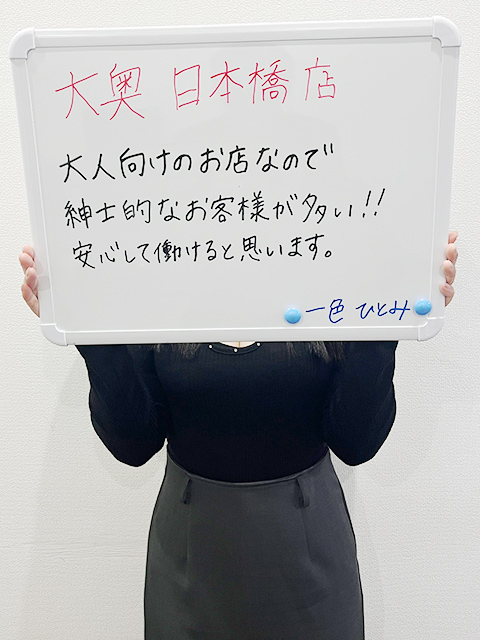 大奥 日本橋店
大人向けのお店なので
紳士的なお客様が多い!!
安心して働けると思います。
一色 ひとみ